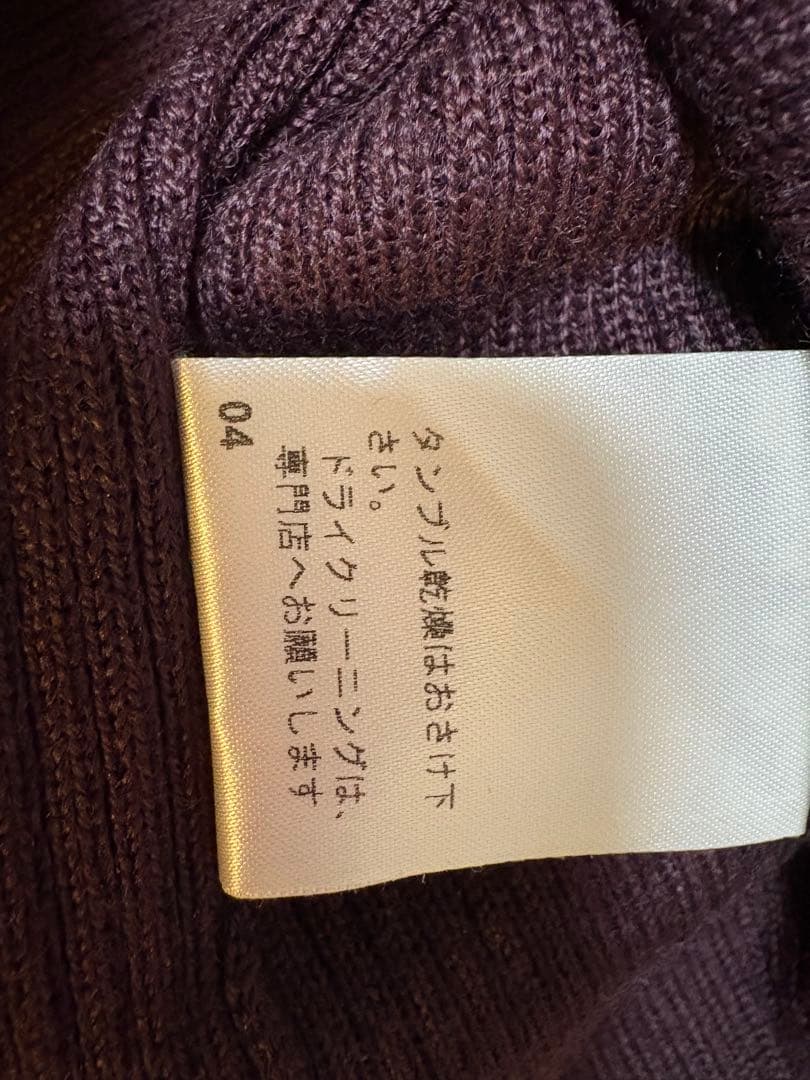 タンブル乾燥はおさけ下
さい。
ドライクリーニングは、
専門店へお願いします
04